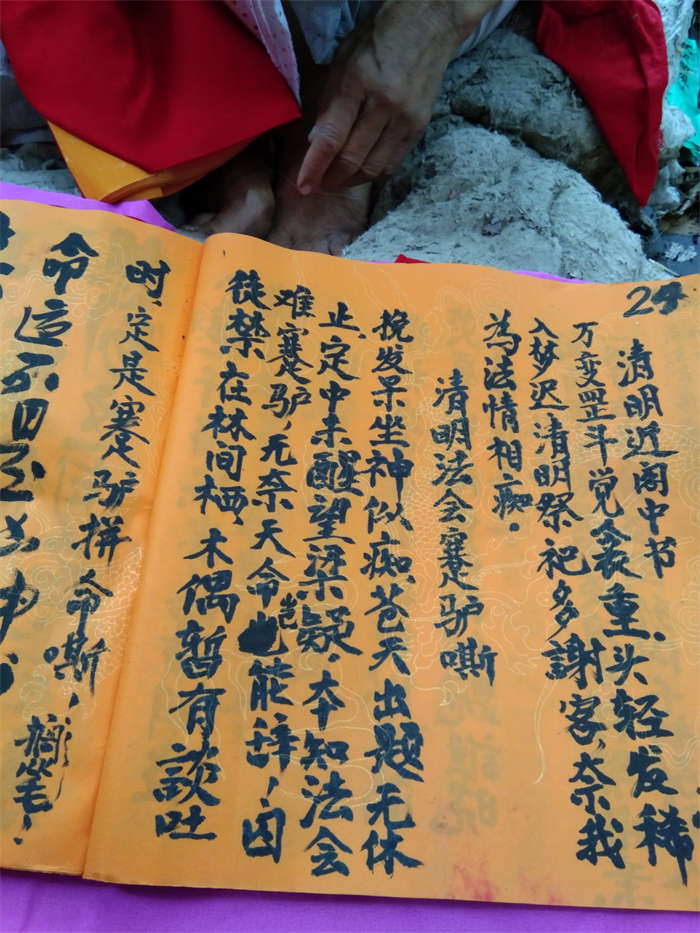 24
清明近阁中书
万变罡斗觉衾重.头轻发稀
入梦迟,清明祭祀多謝客,奈我
為法情相痴.
清明法会蹇驴嘶
挽发呆坐神似痴.苍天出题无休
止.定中未醒望梁疑.本知法会
难蹇驴,无奈天命岂能辞!囚
徒禁在林间栖.木偶暂有談吐
时,定是蹇驴拼命嘶,
搁笔!
命這不日